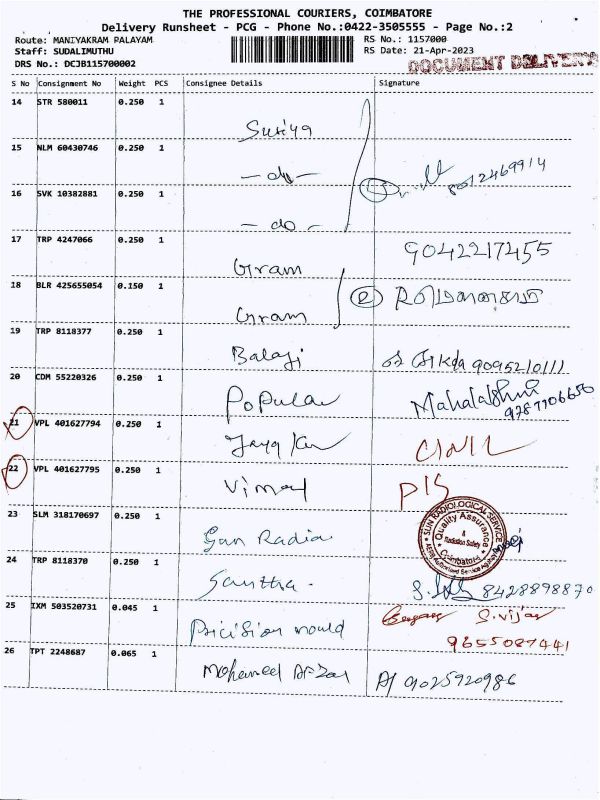 THE PROFESSIONAL COURIERS, COIMBATORE
Delivery Runsheet - PCG - Phone No.:0422-3505555 - Page No.:2
Route: MANIYAKRAM PALAYAM RS No.: 1157000
Staff: SUDALIMUTHU RS Date: 21-Apr-2023
DRS No.: DCJB115700002 DOCUMENT DELIVERY
S No Consignment No Weight PCS Consignee Details Signature
14 STR 580011 0.250 1
Suriya
15 NLM 60430746 0.250 1
-do-
16 SVK 10382881 0.250 1
-do-
17 TRP 4247066 0.250 1
Gram 9042217455
18 BLR 425655054 0.150 1
Gram 2
19 TRP 8118377 0.250 1
Balaji
20 CDM 55220326 0.250 1
Popular Mahalakshmi
21 VPL 401627794 0.250 1
22 VPL 401627795 0.250 1
Vimal
23 SLM 318170697 0.250 1
SUN RADIOLOGICAL SERVICE
Quality Assurance
&
Radiation Safety
Coimbatore
24 TRP 8118370 0.250 1
Santha. 8428898870
25 IXM 503520731 0.045 1
Pricision mould S. vijay
9655087441
26 TPT 2248687 0.065 1
Mohameed Afzal 9025920986